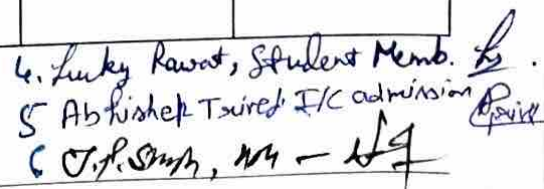 4. Lucky Rawat, Student Memb.
5 Abhishek Tsired I/C admission
6 J.P. Singh,